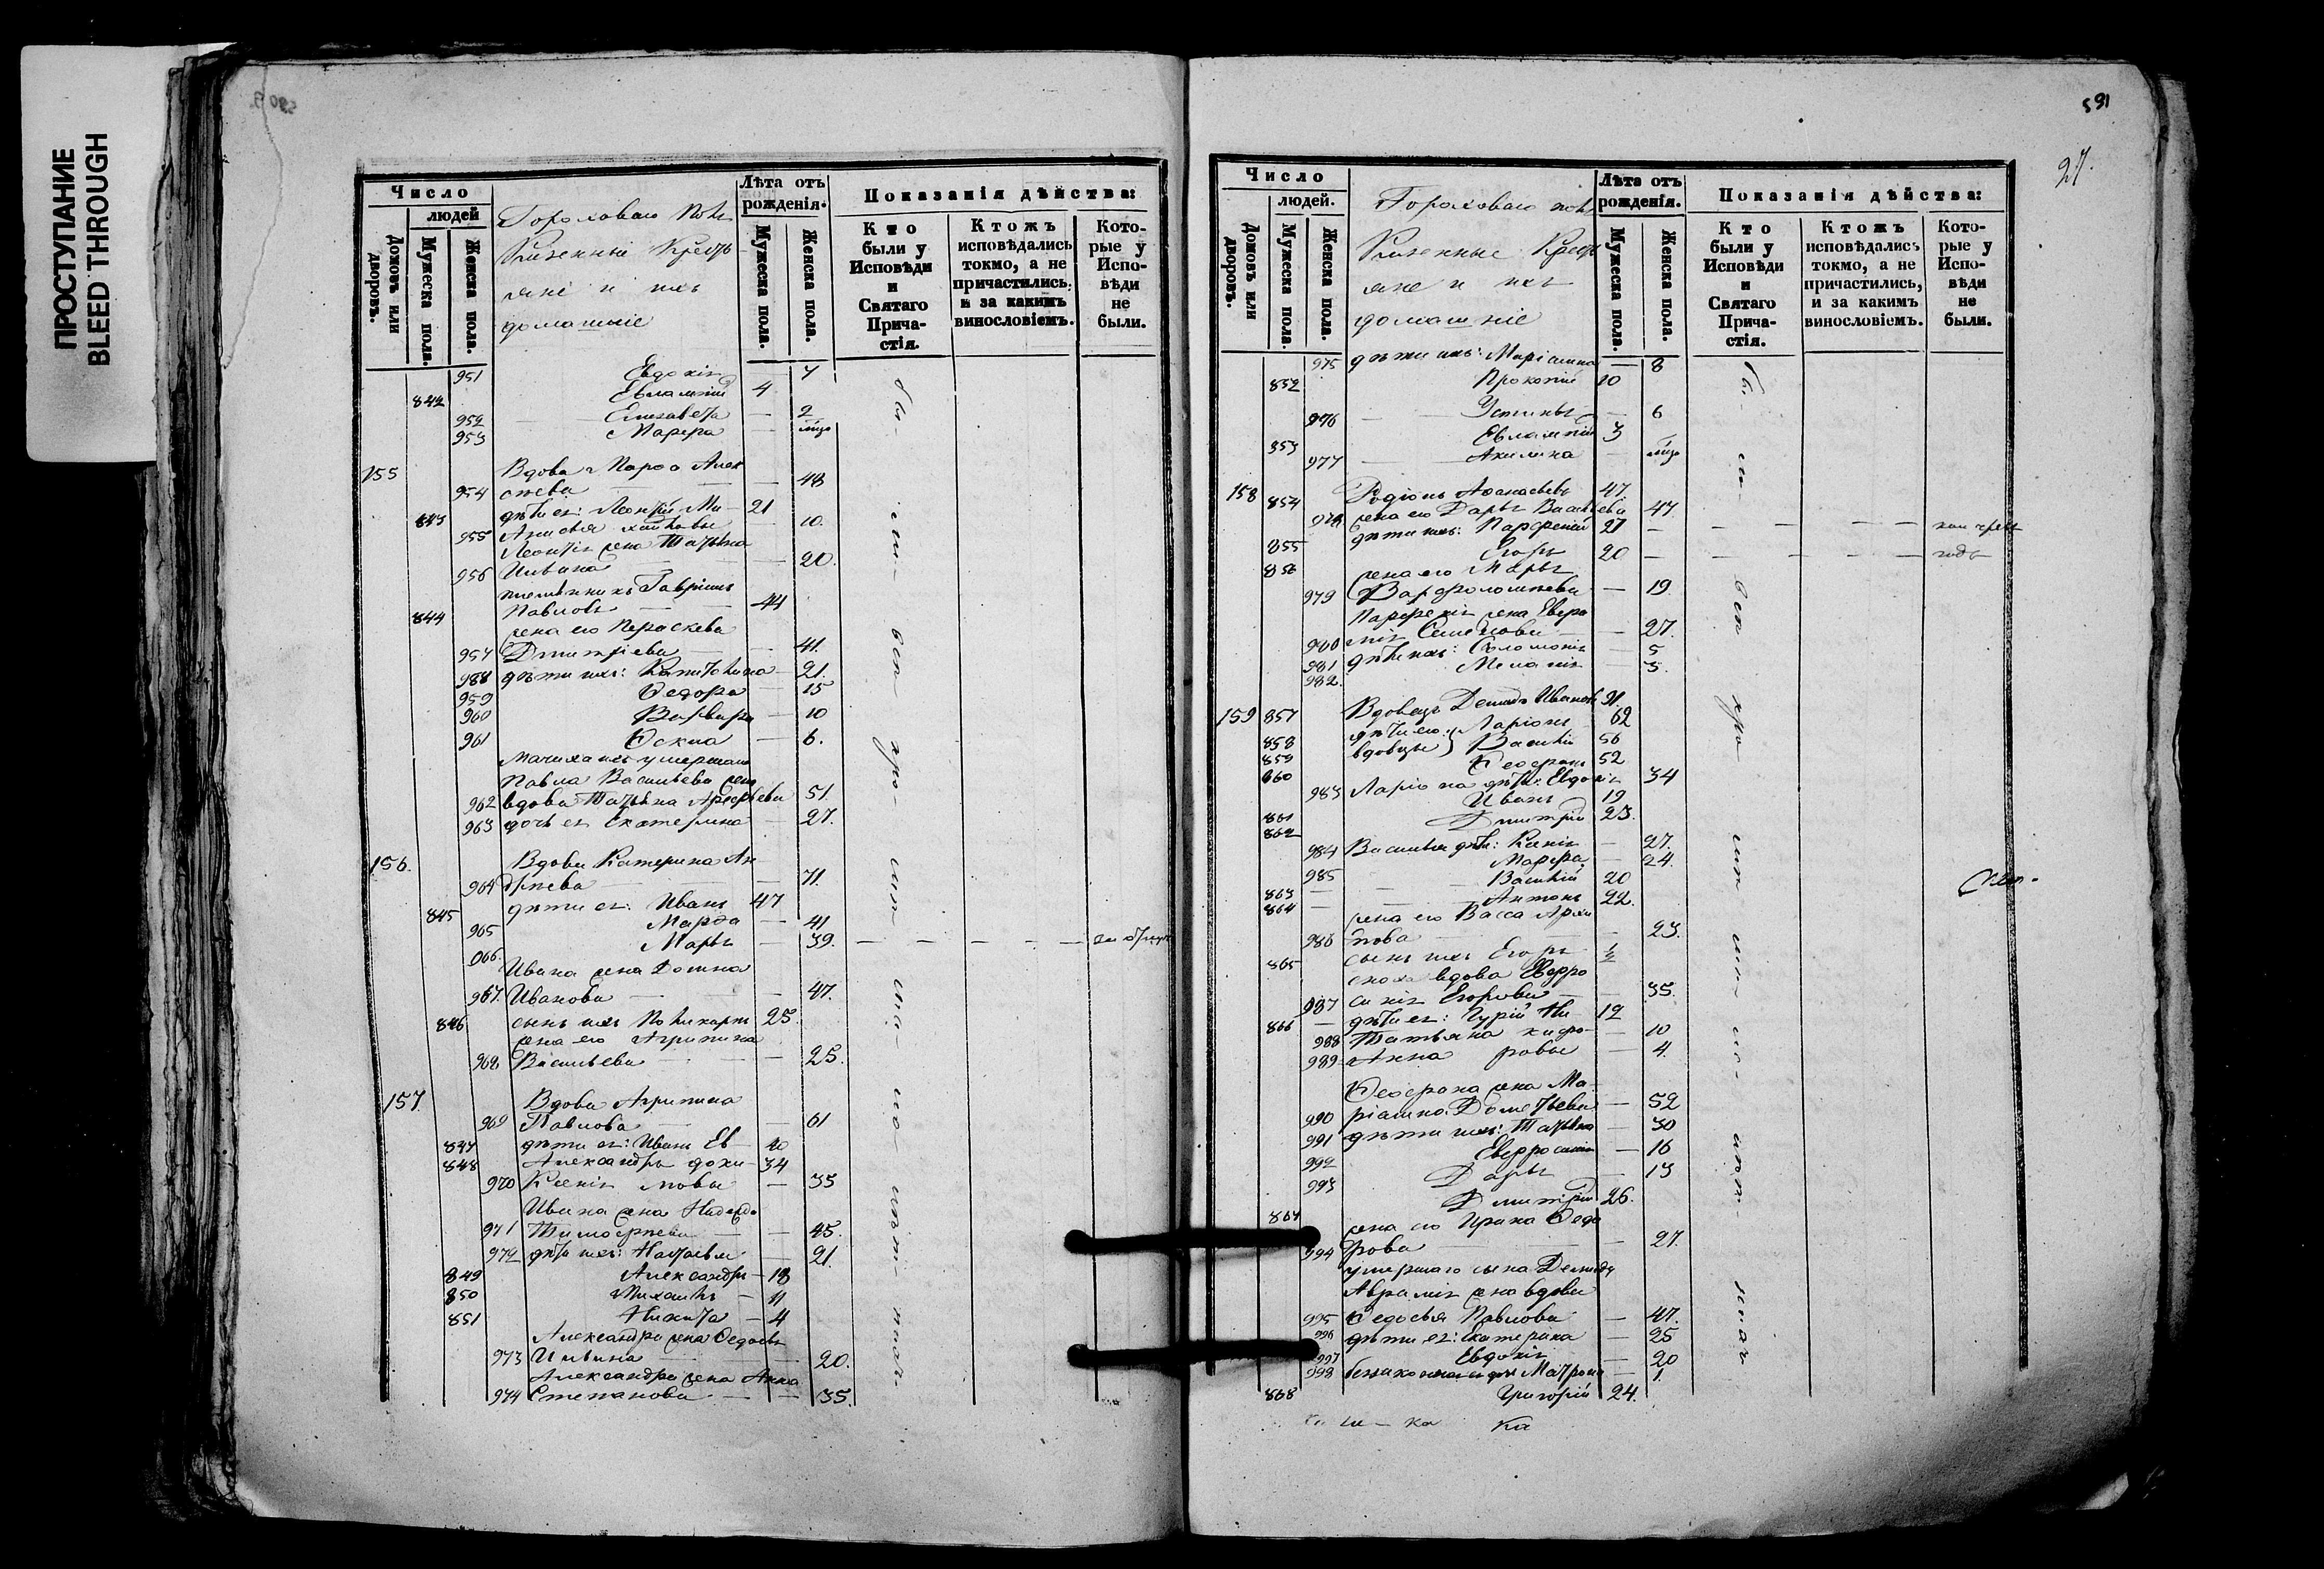 ПРОСТУПАНИЕ
BLEED THROUGH
Число
людей
Домовъ или дворовъ.
Мужеска пола.
Женска пола.
Гороховаго
Казенные Кресть
яне и ихъ
домашніе
Лѣта отъ рожденія.
Мужеска пола.
Женска пола.
Показанія дѣйства:
Кто были у Исповѣди и Святаго Причастія.
Ктожъ исповѣдались токмо, а не причастились, и за какимъ винословіемъ.
Которые у Исповѣди не были.
951 Евдокія — 7
842 Евлампій 4
952 Елизавета — 2
953 Марфа —
155 Вдова Алек
954 сѣева — 48
843 дѣти ея: Леонтій Ми- 21
955 Анисья хайловы — 10.
Леонтія жена Татьяна
956 Ильина — 20.
племянникъ Гавріилъ
844 Павловъ — 44
жена его Параскева
957 Дмитріева — 41.
958 дѣти ихъ: Капитолина — 21.
959 Ѳедора — 15
960 Варвара — 10
961 Ѳекла — 6.
мачиха ихъ умершаго
Павла Васильева жена
962 вдова Татьяна Арефьева 51.
963 дочь ея Екатерина — 27.
156. Вдова Катерина Ан
964 дрѣева — 71.
845 дѣти ея: Иванъ 47
965 Марѳа — 41
966. Марья — 39.
Ивана жена Домна
967. Иванова — 47.
846 сынъ ихъ Поликарпъ 25.
жена его Агрипина
968 Васильева — 25.
157. Вдова Агрипина
969 Павлова — 61
847 дѣти ея: Иванъ Ев- 40
848 Александръ доки- 34
970 Ксенія мовы — 35
Ивана жена Надежда
971 Тимофѣева — 45.
972 дѣти ихъ: Наталья — 21.
849 Александръ — 18
850 Михаилъ — 11
851 Никита — 4
Александра жена Ѳедосья
973 Ильина — 20.
Александра жена Анна
974 Степанова — 35.
591
27.
Число
людей.
Домовъ или дворовъ.
Мужеска пола.
Женска пола.
Гороховаго
Казенные Кресть
яне и ихъ
домашніе
Лѣта отъ рожденія.
Мужеска пола.
Женска пола.
Показанія дѣйства:
Кто были у Исповѣди и Святаго Причастія.
Ктожъ исповѣдались токмо, а не причастились, и за какимъ винословіемъ.
Которые у Исповѣди не были.
975 дѣти ихъ: Маріамна — 8
852 Прокопій 10
976 Устинья — 6
853 Евлампій 3
977 Акилина —
158 854 Родіонъ Аѳанасьевъ 47.
978 жена его Дарья Васильева 47.
855 дѣти ихъ: Парфеній 27 —
856 Егоръ 20 —
жена его Марья
979 Варфоломѣева — 19
Парфенія жена Евфи
980 мія Семенова — 27.
981 дѣти ихъ: Соломонія — 5
982. Меланія — 3.
159 857 Вдовецъ Демидъ Ивановъ 91.
858 дѣти его: Ларіонъ 62
859 вдовцы Василій 56
860 Ѳеофанъ 52
983 Ларіона дѣти: Евдокія 34
861 Иванъ 19
862 Дмитрій 23.
984 Василья дѣти: Ксенія — 27.
985 Марфа — 24.
863 — Василій 20
864 — Антонъ 22.
жена его Васса Архи
986 пова — 23.
865 сынъ ихъ Егоръ ½
сноха вдова Евфро
987 синія Егорова — 35.
866 — дѣти ея: Гурій Ни 12
988 Татьяна кифо- — 10
989 Анна ровы — 4.
Ѳеофана жена Ма-
990 ріамна Дометьева — 52
991 дѣти ихъ: Татьяна — 30
992 Евфросинія — 16
993 Дарья — 13
867 Дмитрій 26.
жена его Ирина Ѳедо
994 рова — 27.
умершаго сына Демида
Аврамія жена вдова
995 Ѳедосья Павлова — 47.
996 дѣти ея: Екатерина — 25
997 Евдокія — 20
998 Матрона — 1.
868 Григорій 24.